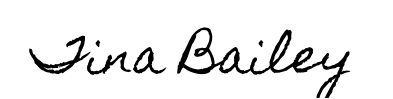 Tina Bailey